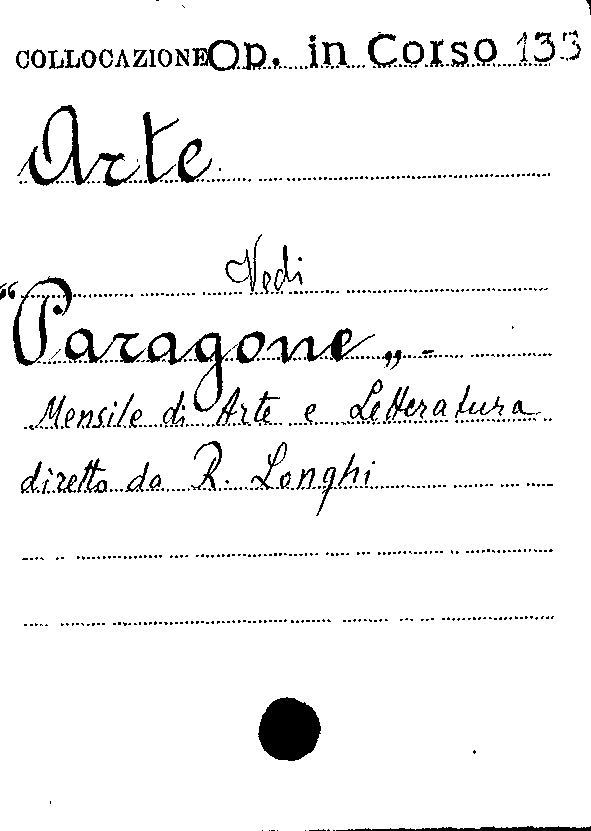 COLLOCAZIONE Op. in Corso 133
Arte
Vedi
"Paragone„ -
Mensile di Arte e Letteratura
diretto da R. Longhi